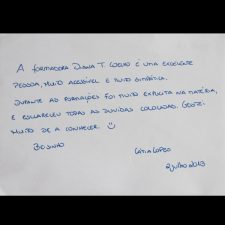 A FORMADORA DIANA T. COELHO É UMA EXCELENTE
PESSOA, MUITO ACESSÍVEL E MUITO SIMPÁTICA.
DURANTE AS FORMAÇÕES FOI MUITO EXPLÍCITA NA MATÉRIA,
E ESCLARECEU TODAS AS DUVIDAS COLOCADAS. GOSTEI
MUITO DE A CONHECER. ☺
BEIJINHO
CÁTIA LOPES
JULHO 2013